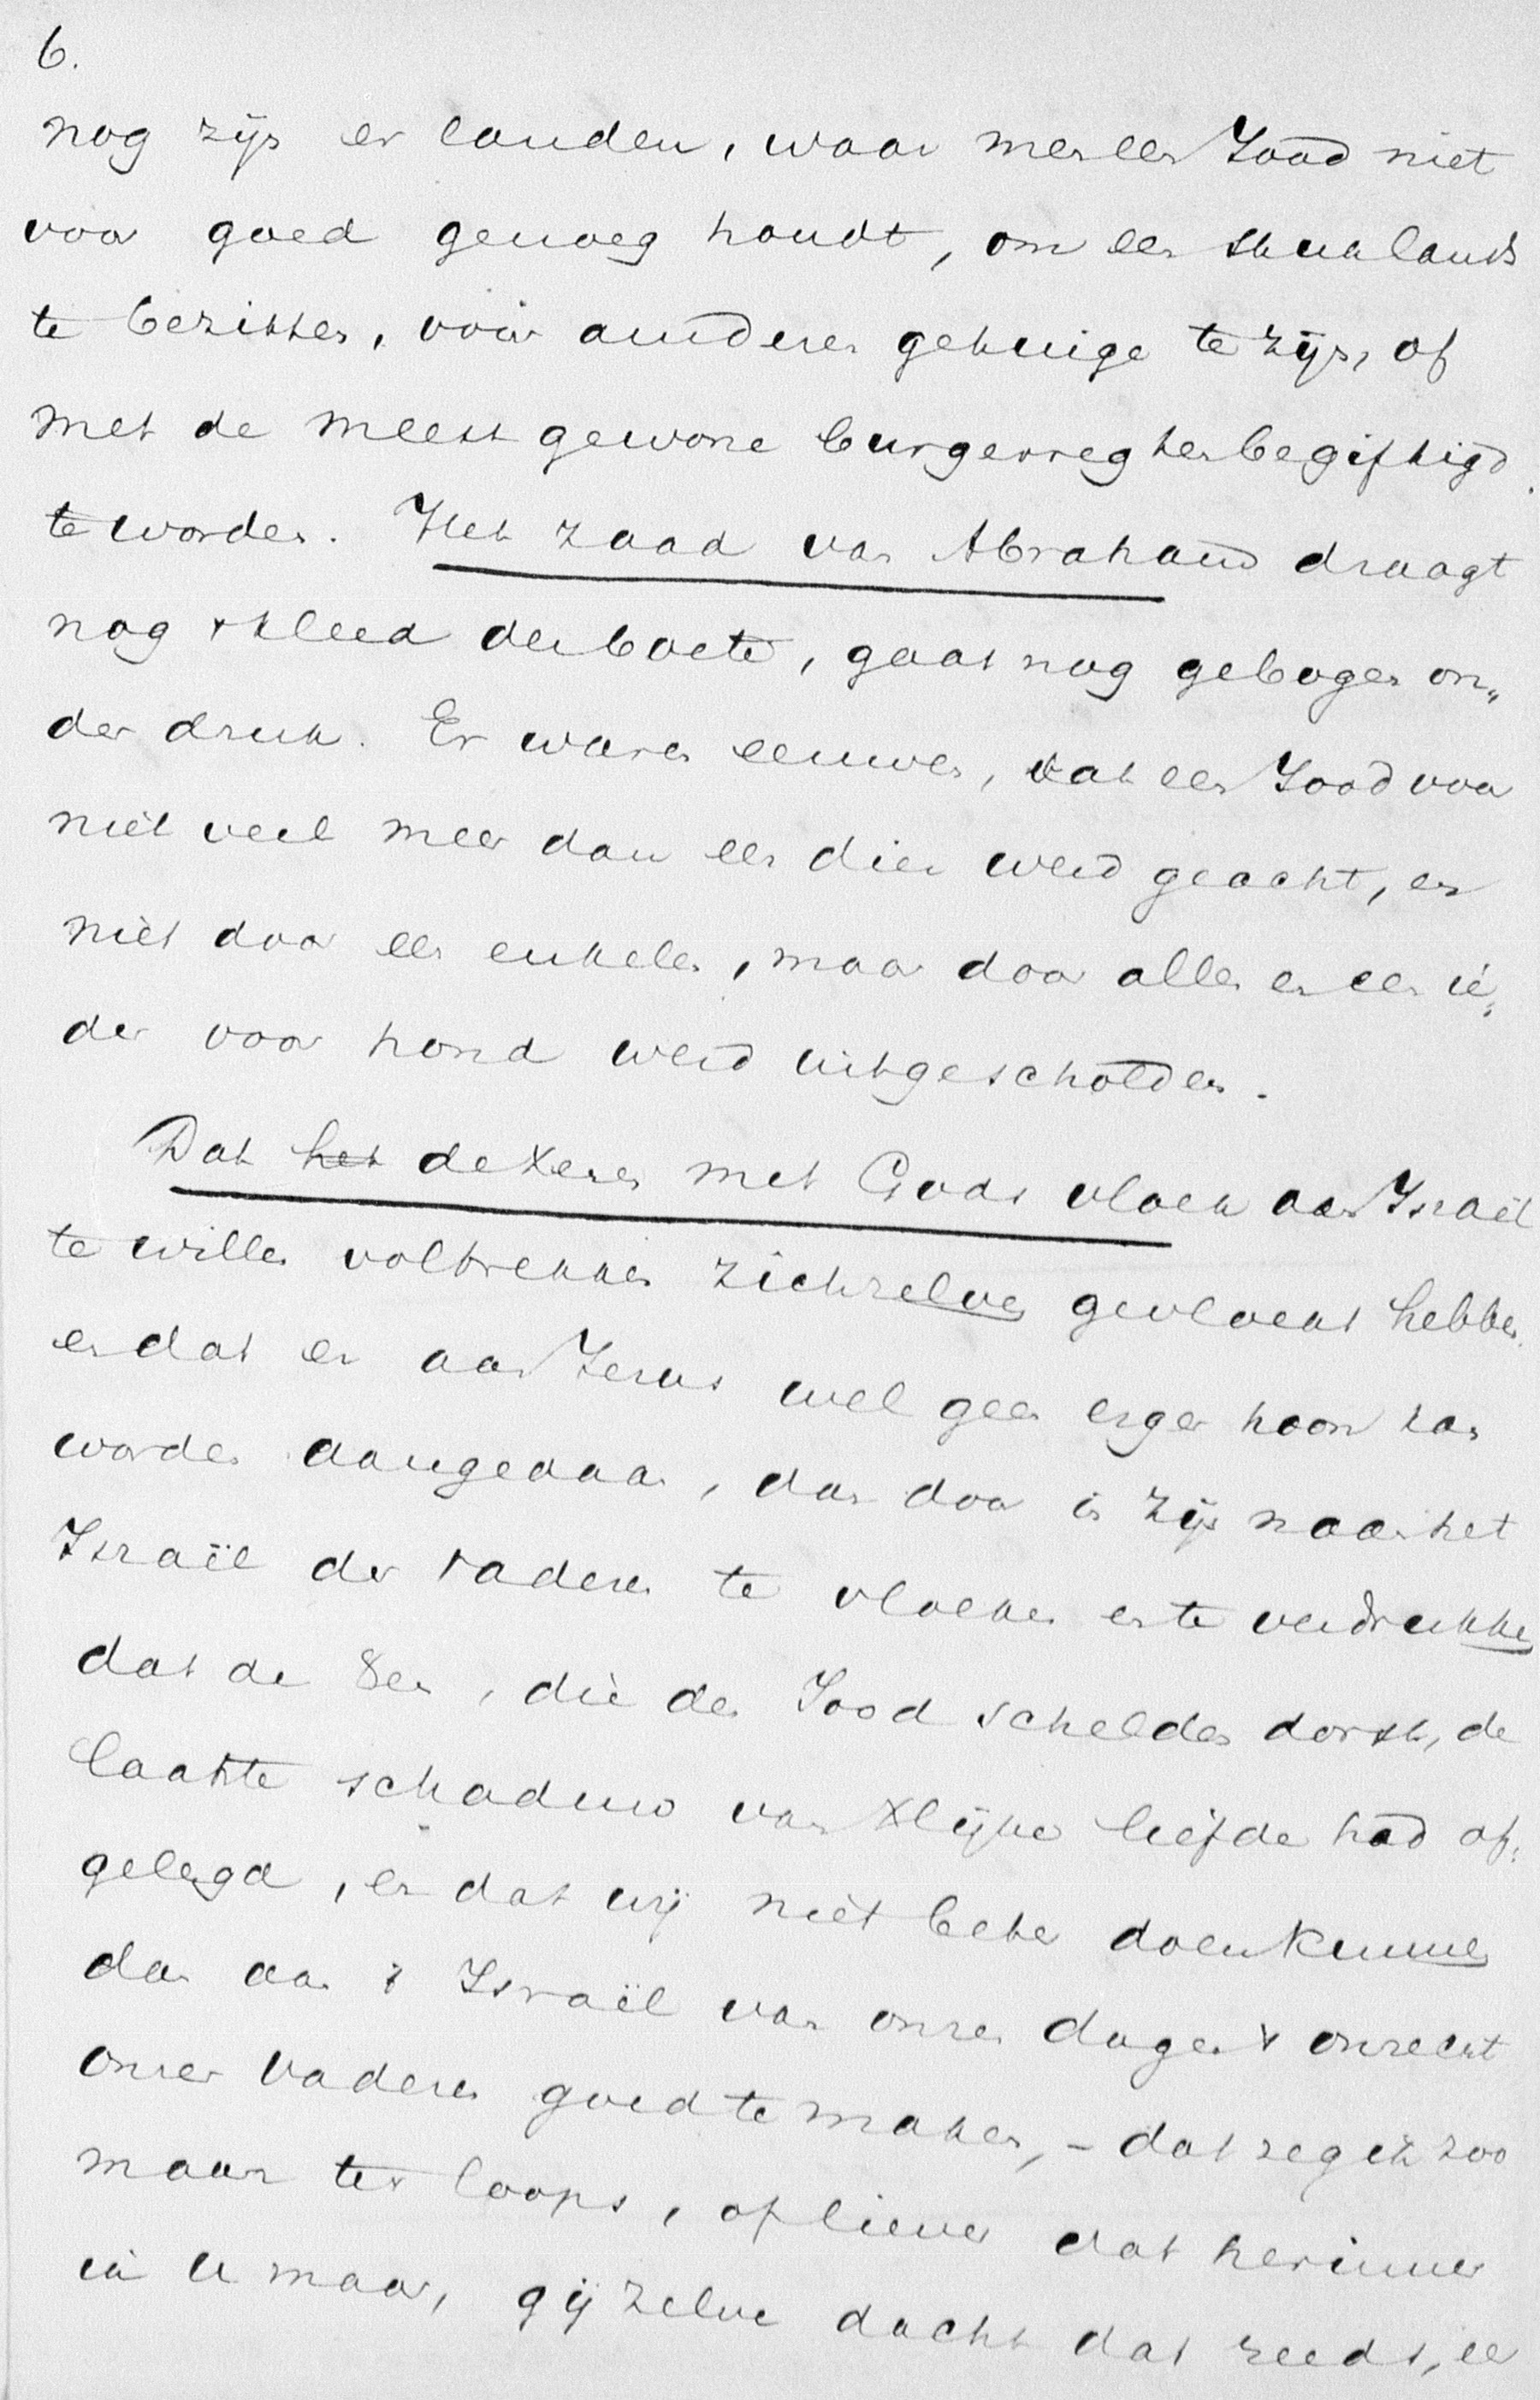 6.
nog zijn er landen, waar men een Jood niet
voor goed genoeg houdt, om een stuk lands
te bezitten, voor anderen getuige te zijn, of
met de meest gewone burgerregten begiftigd
te worden. Het zaad van Abraham draagt
nog 't kleed der boete, gaat nog gebogen on„
der druk. Er waren eeuwen, dat een Jood voor
niet veel meer dan een dier werd geacht, en
niet door een enkelen, maar door allen en een ie„
der voor hond werd uitgescholden.
Dat het de Xenen met Gods vloek aan Israël
te willen voltrekken zichzelven gevloekt hebben
en dat er aan Jezus wel geen erger hoon kan
worden aangedaan, dan door in zijn naam het
Israël der vaderen te vloeken en te verdrukken
dat de Xen, die den Jood schelden dorst, de
laatste schaduw van Xlijke liefde had af„
gelegd, en dat wij niet beter doen kunnen
dan aan 't Israël van onze dagen 't onrecht
onzer vaderen goed te maken, – dat zeg ik zoo
maar ter loops, of liever dat herinner
ik u maar, gij zelve dacht dat reeds, ee